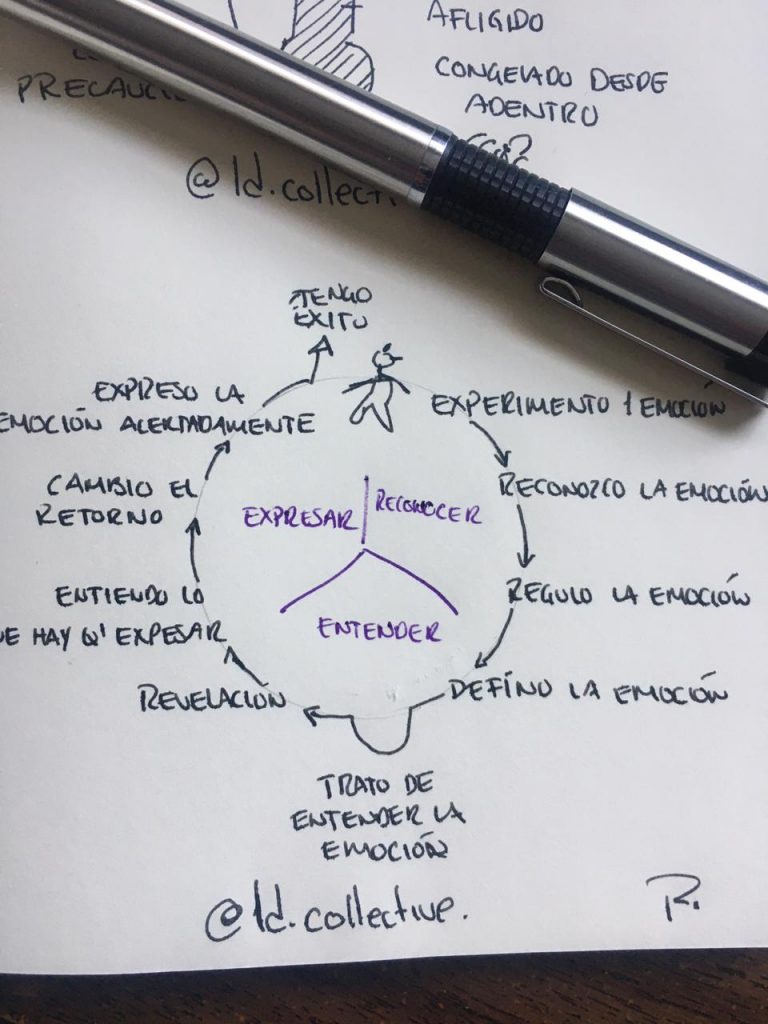 AFLIGIDO
CONGELADO DESDE
ADENTRO
@ld.collecti
¡TENGO
ÉXITO
EXPRESO LA
EMOCIÓN ALERTADAMENTE
EXPERIMENTO 1 EMOCIÓN
CAMBIO EL
RETORNO
RECONOZCO LA EMOCIÓN
EXPRESAR
RECONOCER
ENTENDER
ENTIENDO LO
UE HAY Q' EXPESAR
REGULO LA EMOCIÓN
REVELACIÓN
DEFINO LA EMOCIÓN
TRATO DE
ENTENDER LA
EMOCIÓN
@ld.collective.
R.